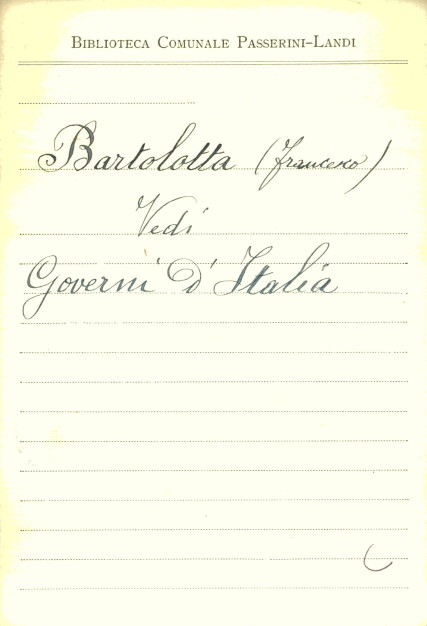 Biblioteca Comunale Passerini-Landi
Bartolotta (Francesco)
Vedi
Governi D'Italia